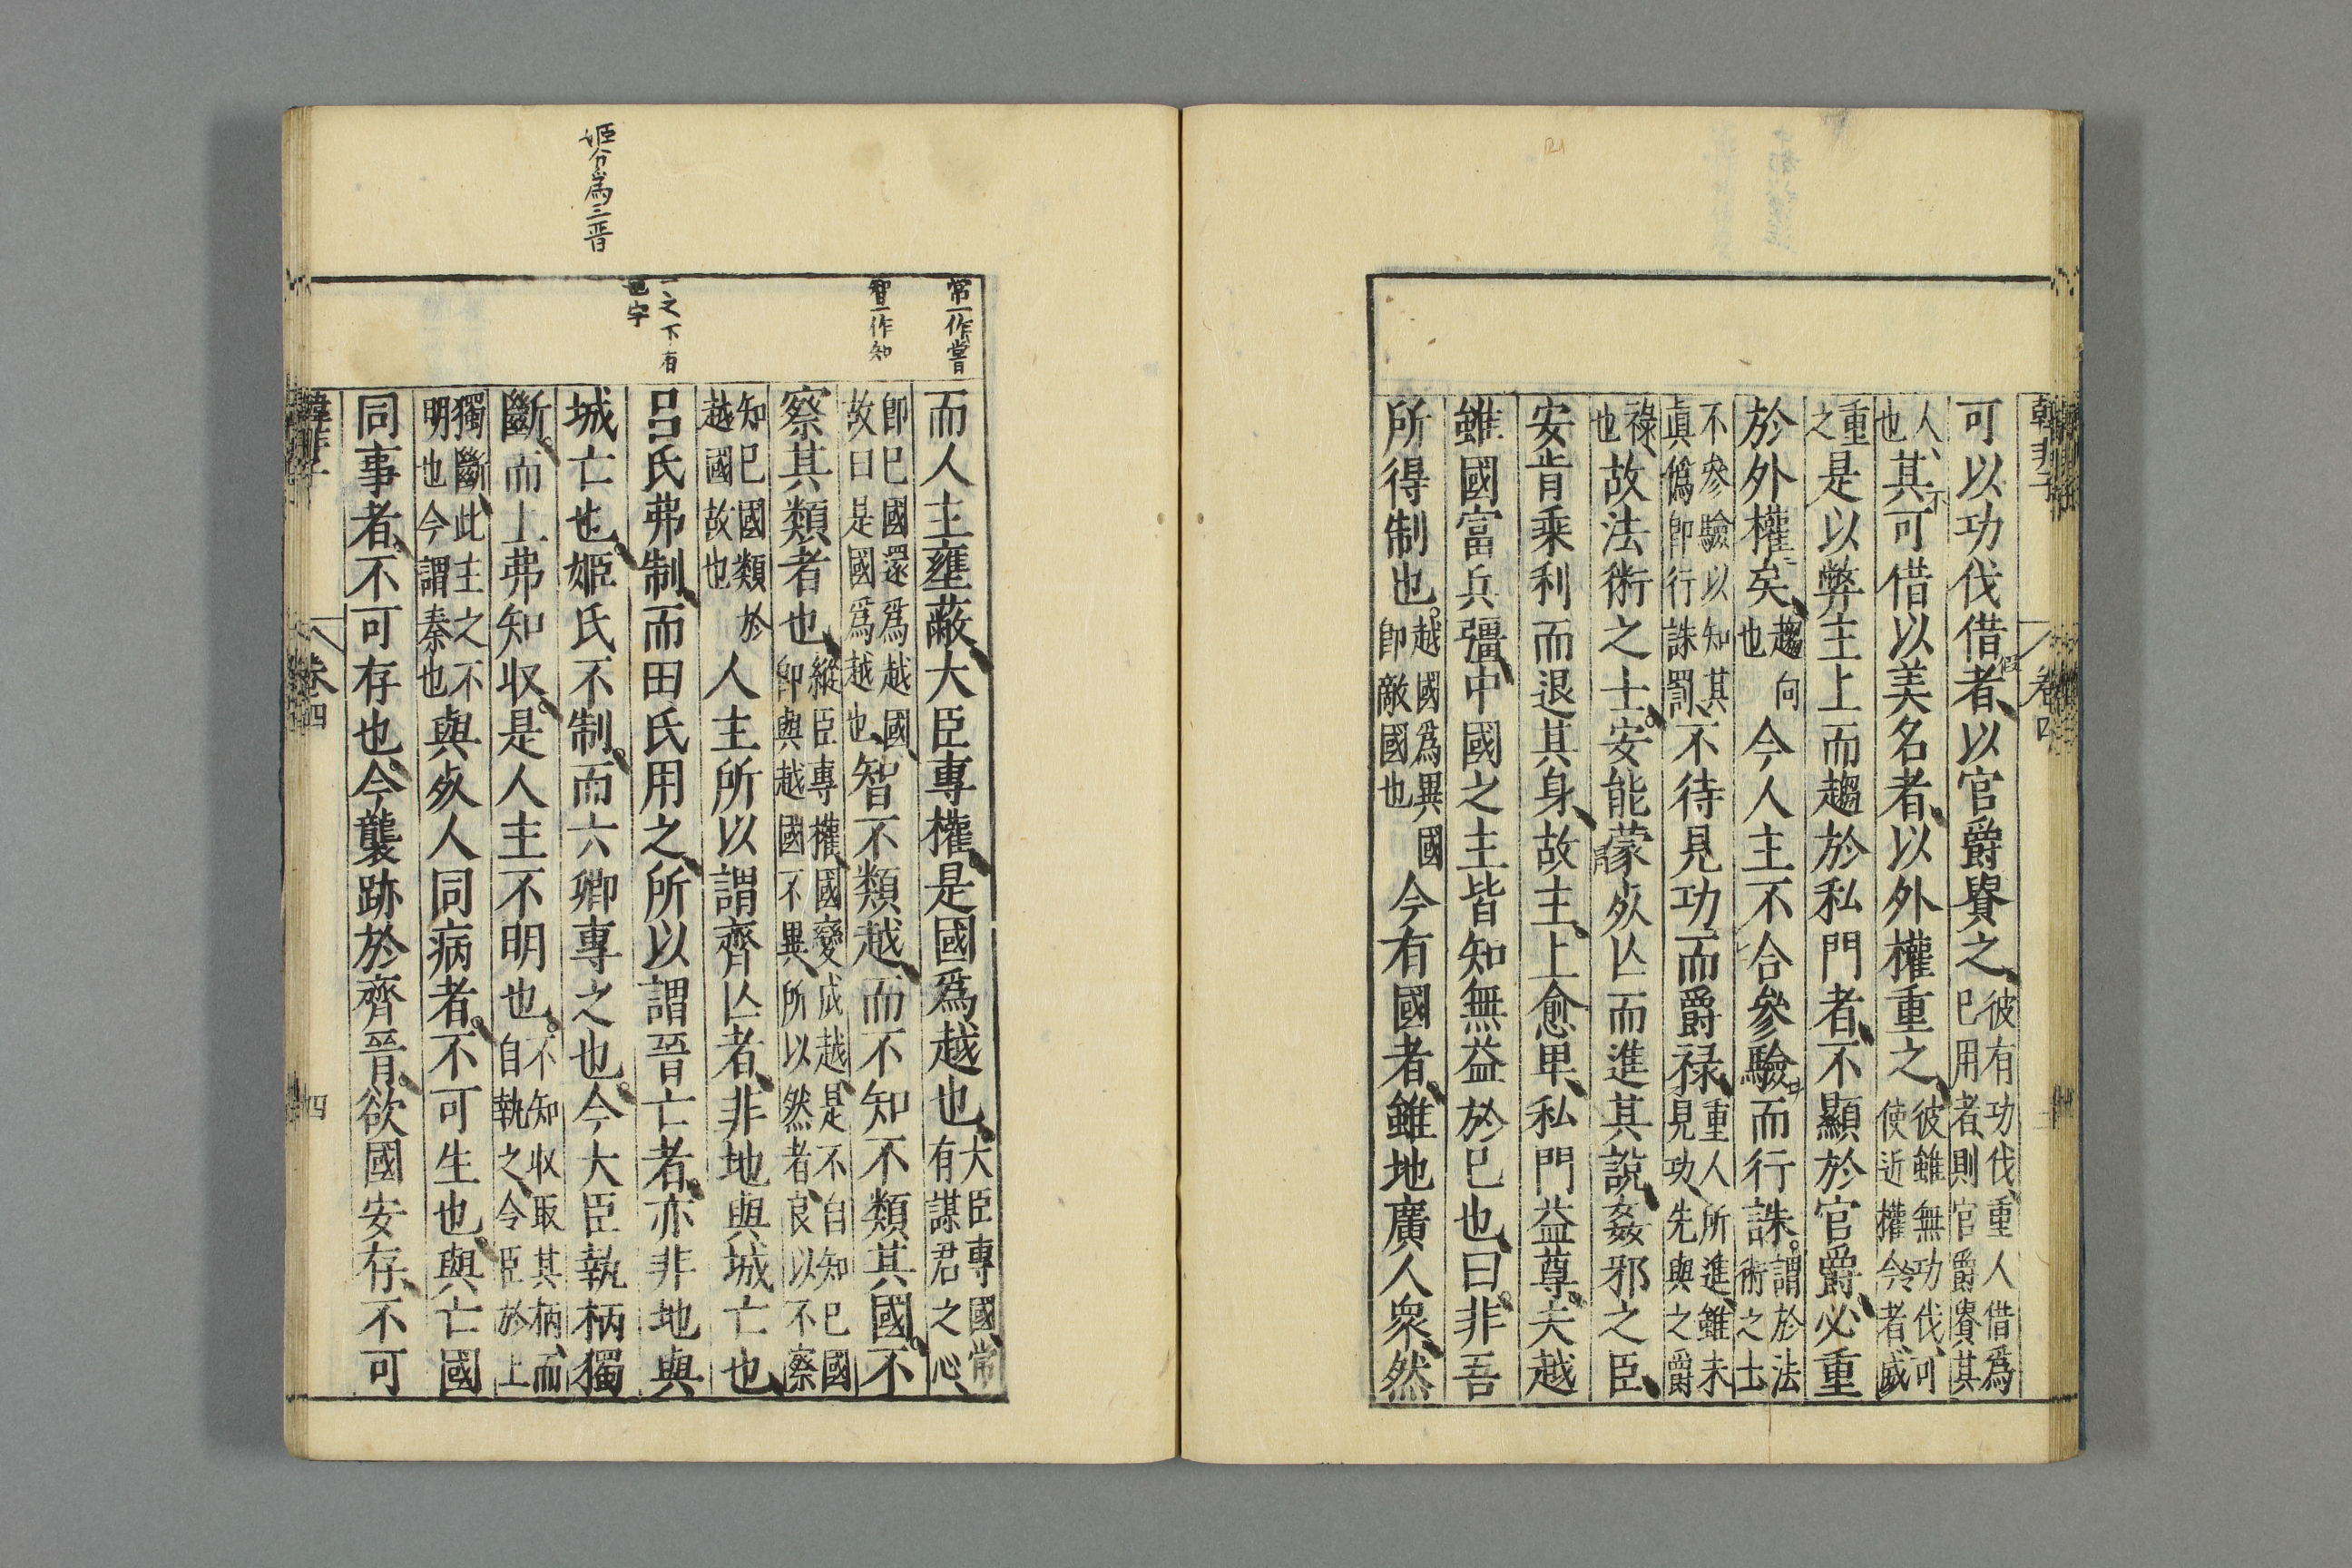 韓非子 卷四
可以功伐借者以官爵貴之彼有功伐重人借爲已用者則官爵貴其
人也其不可借以美名者以外權重之彼雖無功伐可使近權令者威
重之是以弊主上而趨於私門者不顯於官爵必重
於外權矣趨向也今人主不合參驗而行誅謂於法術之士
不參驗以知其眞僞卽行誅罰不待見功而爵祿重人所進雖未見功先與之爵
祿也故法術之士安能蒙死亾而進其說姦邪之臣
安肯乘利而退其身故主上愈卑私門益尊夫越
雖國富兵彊中國之主皆知無益於已也曰非吾
所得制也越國爲異國卽敵國也今有國者雖地廣人衆然
常一作嘗
智一作知
一之下有
也字
姬分爲三晋
而人主壅蔽大臣專權是國爲越也大臣專國常有謀君之心
卽已國還爲越國故曰是國爲越也智不類越而不知不類其國不
察其類者也縱臣專權國變成越是不自知已國卽與越國不異所以然者良以不察
知已國類於越國故也人主所以謂齊亾者非地與城亡也
呂氏弗制而田氏用之所以謂晉亡者亦非地與
城亡也姬氏不制而六卿專之也今大臣執柄獨
斷而上弗知收是人主不明也不知收取其柄而自執之令臣於上
獨斷此主之不明也今謂秦也與死人同病者不可生也與亡國
同事者不可存也今襲跡於齊晉欲國安存不可
韓非子 卷四 四